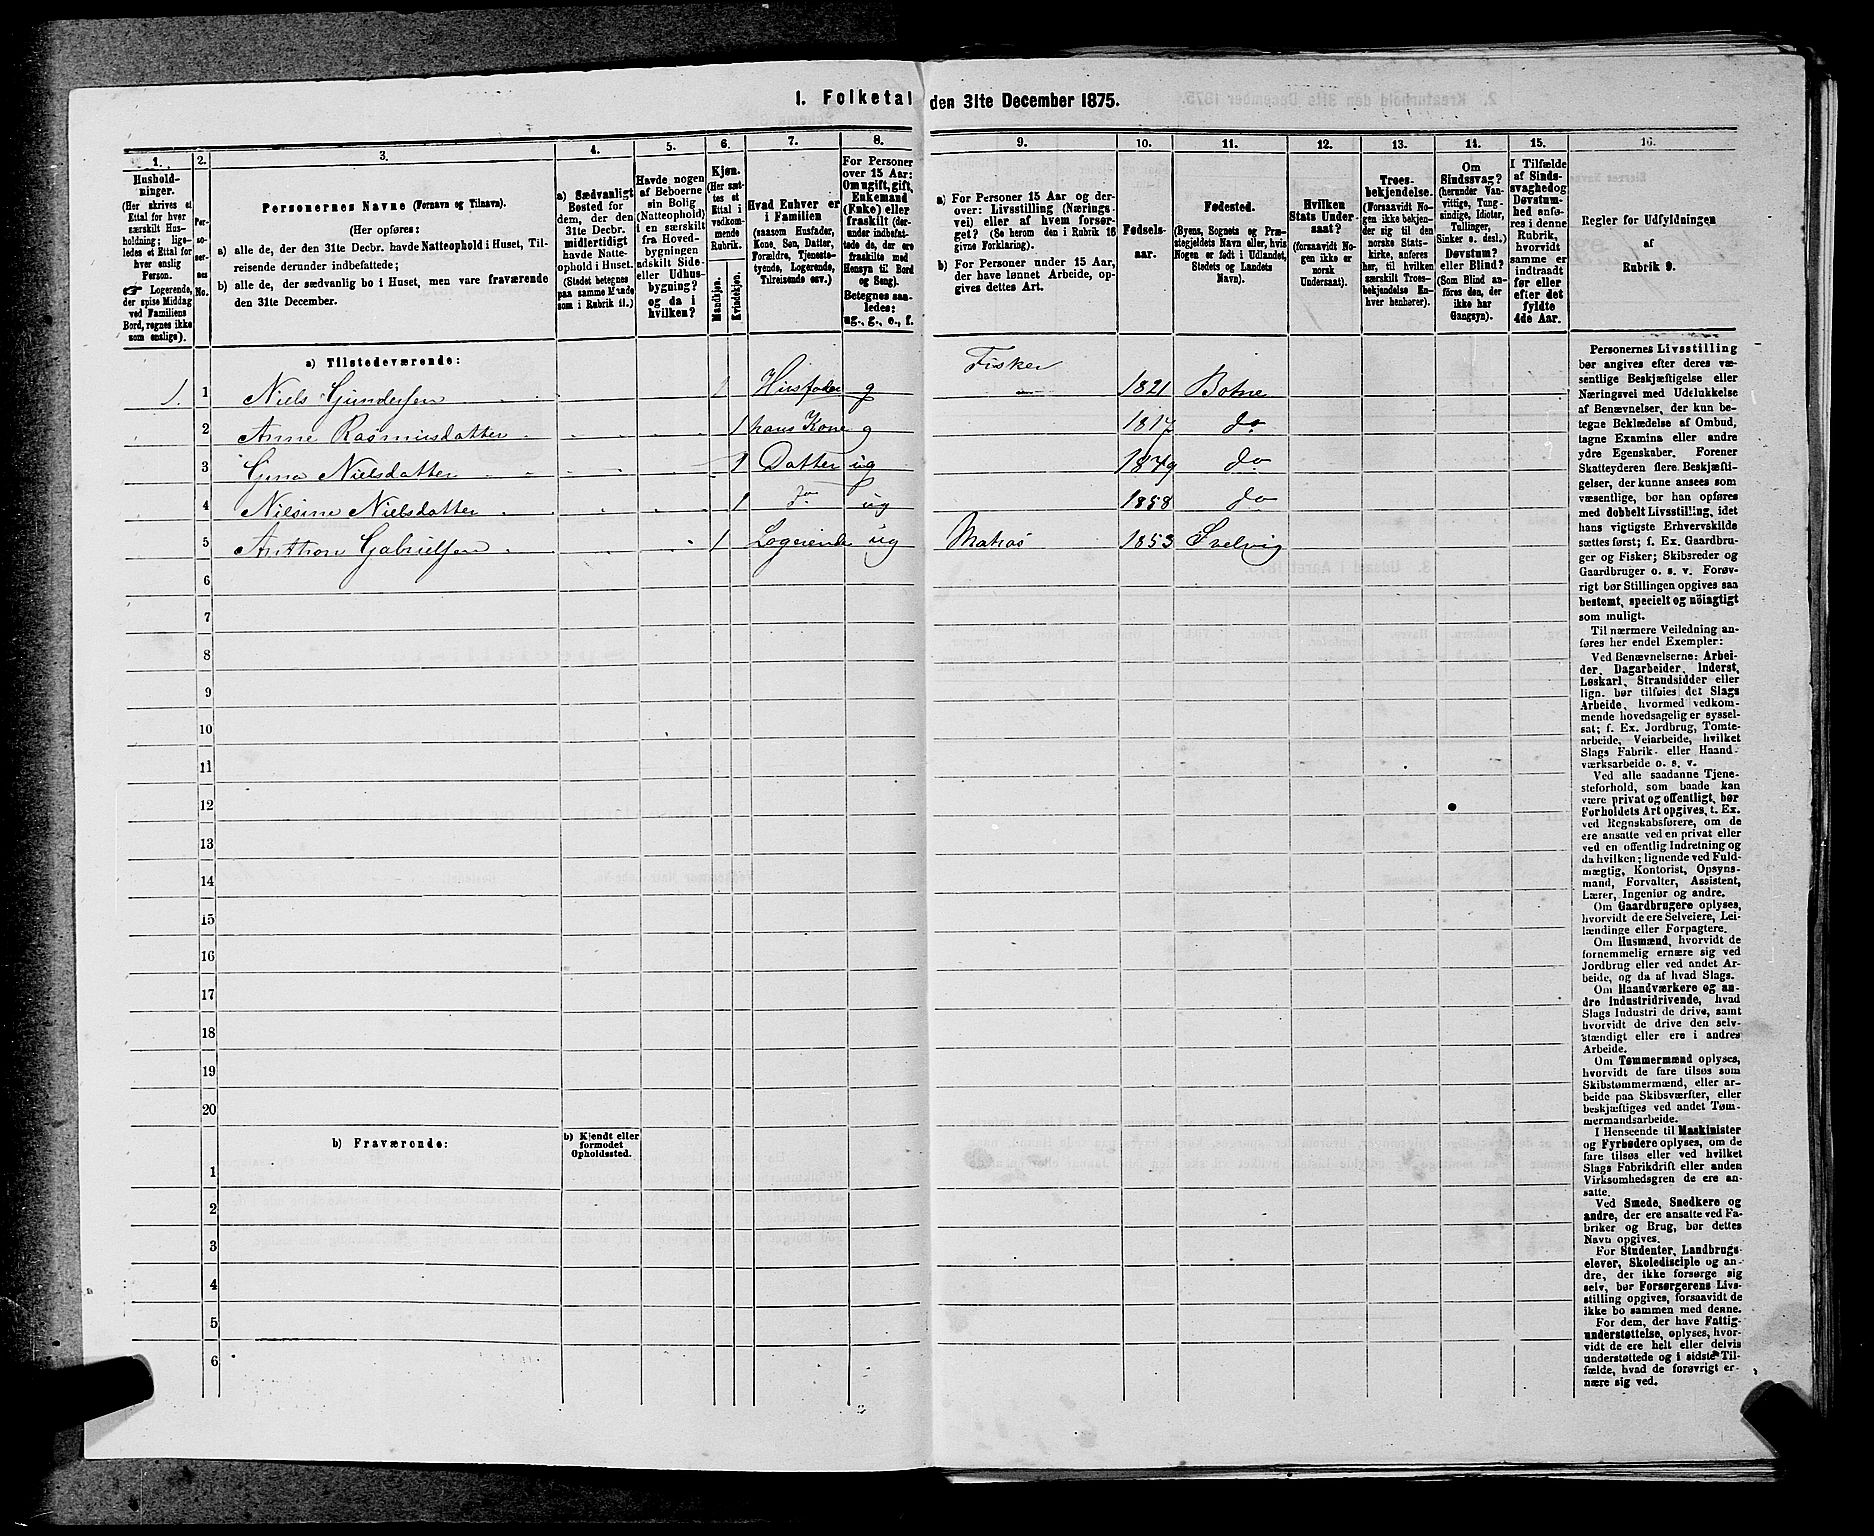 1. Folketal den 31te December 1875.
1.
Hushold-
ninger.
(Her skrives et
Ettal for hver
særskilt Hus-
holdning; lige-
ledes et Ettal for
hver enslig
Person.
☛ Logerende,
der spise Middag
ved Familiens
Bord, regnes ikke
som enslige).
2.
Per-
so-
ner-
nes
No.
3.
Personernes Navne (Fornavn og Tilnavn).
(Her opføres:
a) alle de, der den 31te Decbr. havde Natteophold i Huset, Til-
reisende derunder indbefattede;
b) alle de, der sædvanlig bo i Huset, men vare fraværende
den 31te December.
4.
a) Sædvanligt
Bosted for
dem, der den
31te Decbr.
midlertidigt
havde Natte-
ophold i Huset.
(Stedet betegnes
paa samme Maade
som i Rubrik 11.)
5.
Havde nogen
af Beboerne
sin Bolig
(Natteophold)
i en særskilt
fra Hoved-
bygningen
adskilt Side-
eller Udhus-
bygning?
og da i
hvilken?
6.
Kjøn.
(Her sæt-
tes et
Ettal i
vedkom-
mende
Rubrik.
Mandkjøn.
Kvindekjøn.
7.
Hvad Enhver er
i Familien
(saasom Husfader,
Kone, Søn, Datter,
Forældre, Tjeneste-
tyende, Logerende,
Tilreisende osv.)
8.
For Personer
over 15 Aar:
Om ugift, gift,
Enkemand
(Enke) eller
fraskilt (der-
under indbefat-
tede de, der ere
fraskilte med
Hensyn til Bord
og Seng).
Betegnes saa-
ledes:
ug., g., e., f.
9.
a) For Personer 15 Aar og der-
over: Livsstilling (Nærings-
vei) eller af hvem forsør-
get? (Se herom den i Rubrik 16
givne Forklaring).
b) For Personer under 15 Aar,
der have lønnet Arbeide, op-
gives dettes Art.
10.
Fødsels-
aar.
11.
Fødested.
(Byens, Sognets og Præ-
stegjeldets Navn eller, hvis
Nogen er født i Udlandet,
Stedets og Landets
Navn).
12.
Hvilken
Stats Under-
saat?
(forsaavidt No-
gen ikke er
norsk
Undersaat).
13.
Troes-
bekjendelse.
(Forsaavidt No-
gen ikke bekjen-
der sig til den
norske Stats-
kirke, anføres
her, til hvilken
særskilt Troes-
bekjendelse En-
hver henhører).
14.
Om
Sindssvag?
(herunder Van-
vittige, Tung-
sindige, Idioter,
Tullinger,
Sinker o. desl.).
Døvstum?
eller Blind?
(Som Blind an-
føres den, der
ikke har
Gangsyn).
15.
I Tilfælde
af Sinds-
svaghed og
Døvstum-
hed anfø-
res i denne
Rubrik,
hvorvidt
samme er
indtraadt
før eller
efter det
fyldte
4de Aar.
16.
Regler for Udfyldningen
af
Rubrik 9.
a) Tilstedeværende:
1. 1 Niels Gundersen 1 Husfader g Fisker 1821 Botne
2 Anne Rasmusdatter 1 hans Kone g 1817 do
3 Gina Nielsdatter 1 Datter ug 1849 do
4 Nilsine Nielsdatter 1 do ug 1858 do
5 Anthon Gabrielsen 1 Logerende ug Matros 1853 Svelvig
6
7
8
9
10
11
12
13
14
15
16
17
18
19
20
b) Fraværende:
b) Kjendt eller
formodet
Opholdssted.
1
2
3
4
5
6
Personernes Livsstilling
bør angives efter deres væ-
sentlige Beskjæftigelse eller
Næringsvei med Udelukkelse
af Benævnelser, der kun be-
tegne Beklædelse af Ombud,
tagne Examina eller andre
ydre Egenskaber. Forener
Skatteyderen flere Beskjæfti-
gelser, der kunne ansees som
væsentlige, bør han opføres
med dobbelt Livsstilling, idet
hans vigtigste Erhvervskilde
sættes først; f. Ex. Gaardbru-
ger og Fisker; Skibsreder og
Gaardbruger o. s. v. Forøv-
rigt bør Stillingen opgives saa
bestemt, specielt og nöiagtigt
som muligt.
Til nærmere Veiledning an-
føres her endel Exempler:
Ved Benævnelserne: Arbei-
der, Dagarbeider, Inderst,
Løskarl, Strandsidder eller
lign. bør tilføies det Slags
Arbeide, hvormed vedkom-
mende hovedsagelig er syssel-
sat; f. Ex. Jordbrug, Tomte-
arbeide, Veiarbeide, hvilket
Slags Fabrik- eller Haand-
værksarbeide o. s. v.
Ved alle saadanne Tjene-
steforhold, som baade kan
være privat og offentligt, bør
Forholdets Art opgives, t. Ex.
ved Regnskabsførere, om de
ere ansatte ved en privat eller
ved en offentlig Indretning og
da hvilken; lignende ved Fuld-
mægtig, Kontorist, Opsyns-
mand, Forvalter, Assistent,
Lærer, Ingeniør og andre.
Om Gaardbrugere oplyses,
hvorvidt de ere Selveiere, Lei-
lændinge eller Forpagtere.
Om Husmænd, hvorvidt de
fornemmelig ernære sig ved
Jordbrug eller ved andet Ar-
beide, og da af hvad Slags.
Om Haandværkere og an-
dre Industridrivende, hvad
Slags Industri de drive, samt
hvorvidt de drive den selv-
stændigt eller ere i andres
Arbeide.
Om Tømmermænd oplyses,
hvorvidt de fare tilsøs som
Skibstømmermænd, eller ar-
beide paa Skibsværfter, eller
beskjæftiges ved andet Tøm-
mermandsarbeide.
I Henseende til Maskinister
og Fyrbødere oplyses, om de
fare tilsøs eller ved hvilket
Slags Fabrikdrift eller anden
Virksomhedsgren de ere an-
satte.
Ved Smede, Snedkere og
andre, der ere ansatte ved Fa-
briker og Brug, bør dettes
Navn opgives.
For Studenter, Landbrugs-
elever, Skoledisciple og an-
dre, der ikke forsørge sig
selv, bør Forsørgerens Livs-
stilling opgives, forsaavidt de
ikke bo sammen med denne.
For dem, der have Fattig-
understøttelse, oplyses, hvor-
vidt de ere helt eller delvis
understøttede og i sidste Til-
fælde, hvad de forøvrigt er-
nære sig ved.